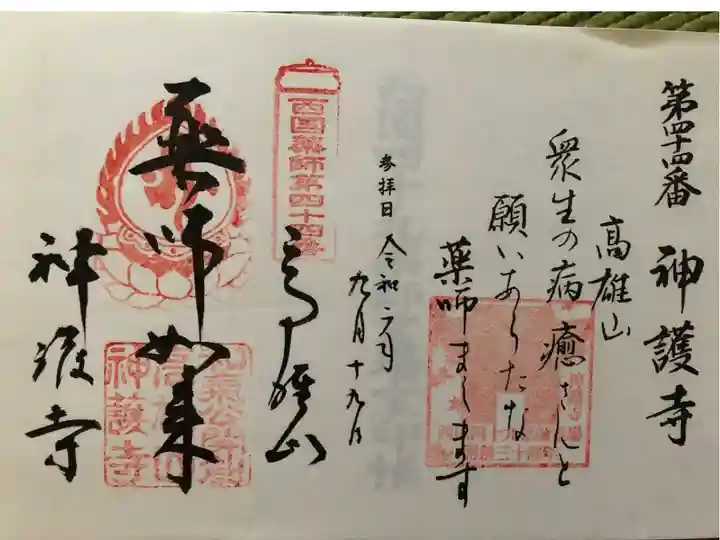 第四十四番 神護寺
高雄山
衆生の病癒さんと
願いあらたな
薬師まします
参拝日 令和二年
九月十九日
西国薬師第四十四番
高雄山
薬師如来
神護寺
神護寺